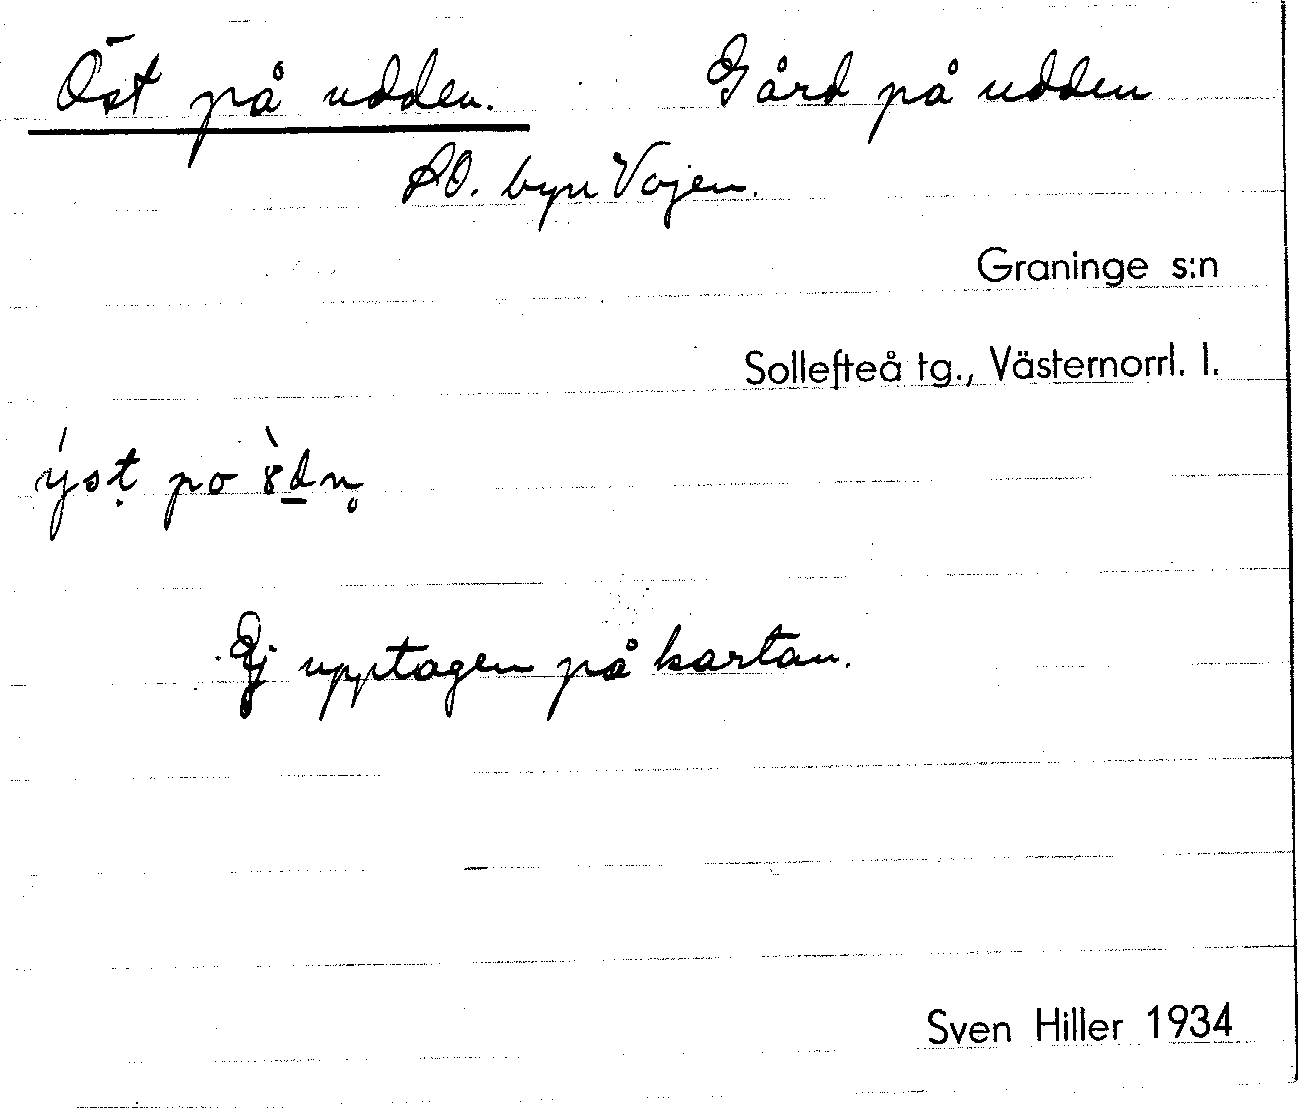 Öst på udden. Gård på udden
SO. byn Vojen.
Graninge s:n
Sollefteå tg., Västernorrl. l.
po
Ej upptagen på kartan.
Sven Hiller 1934